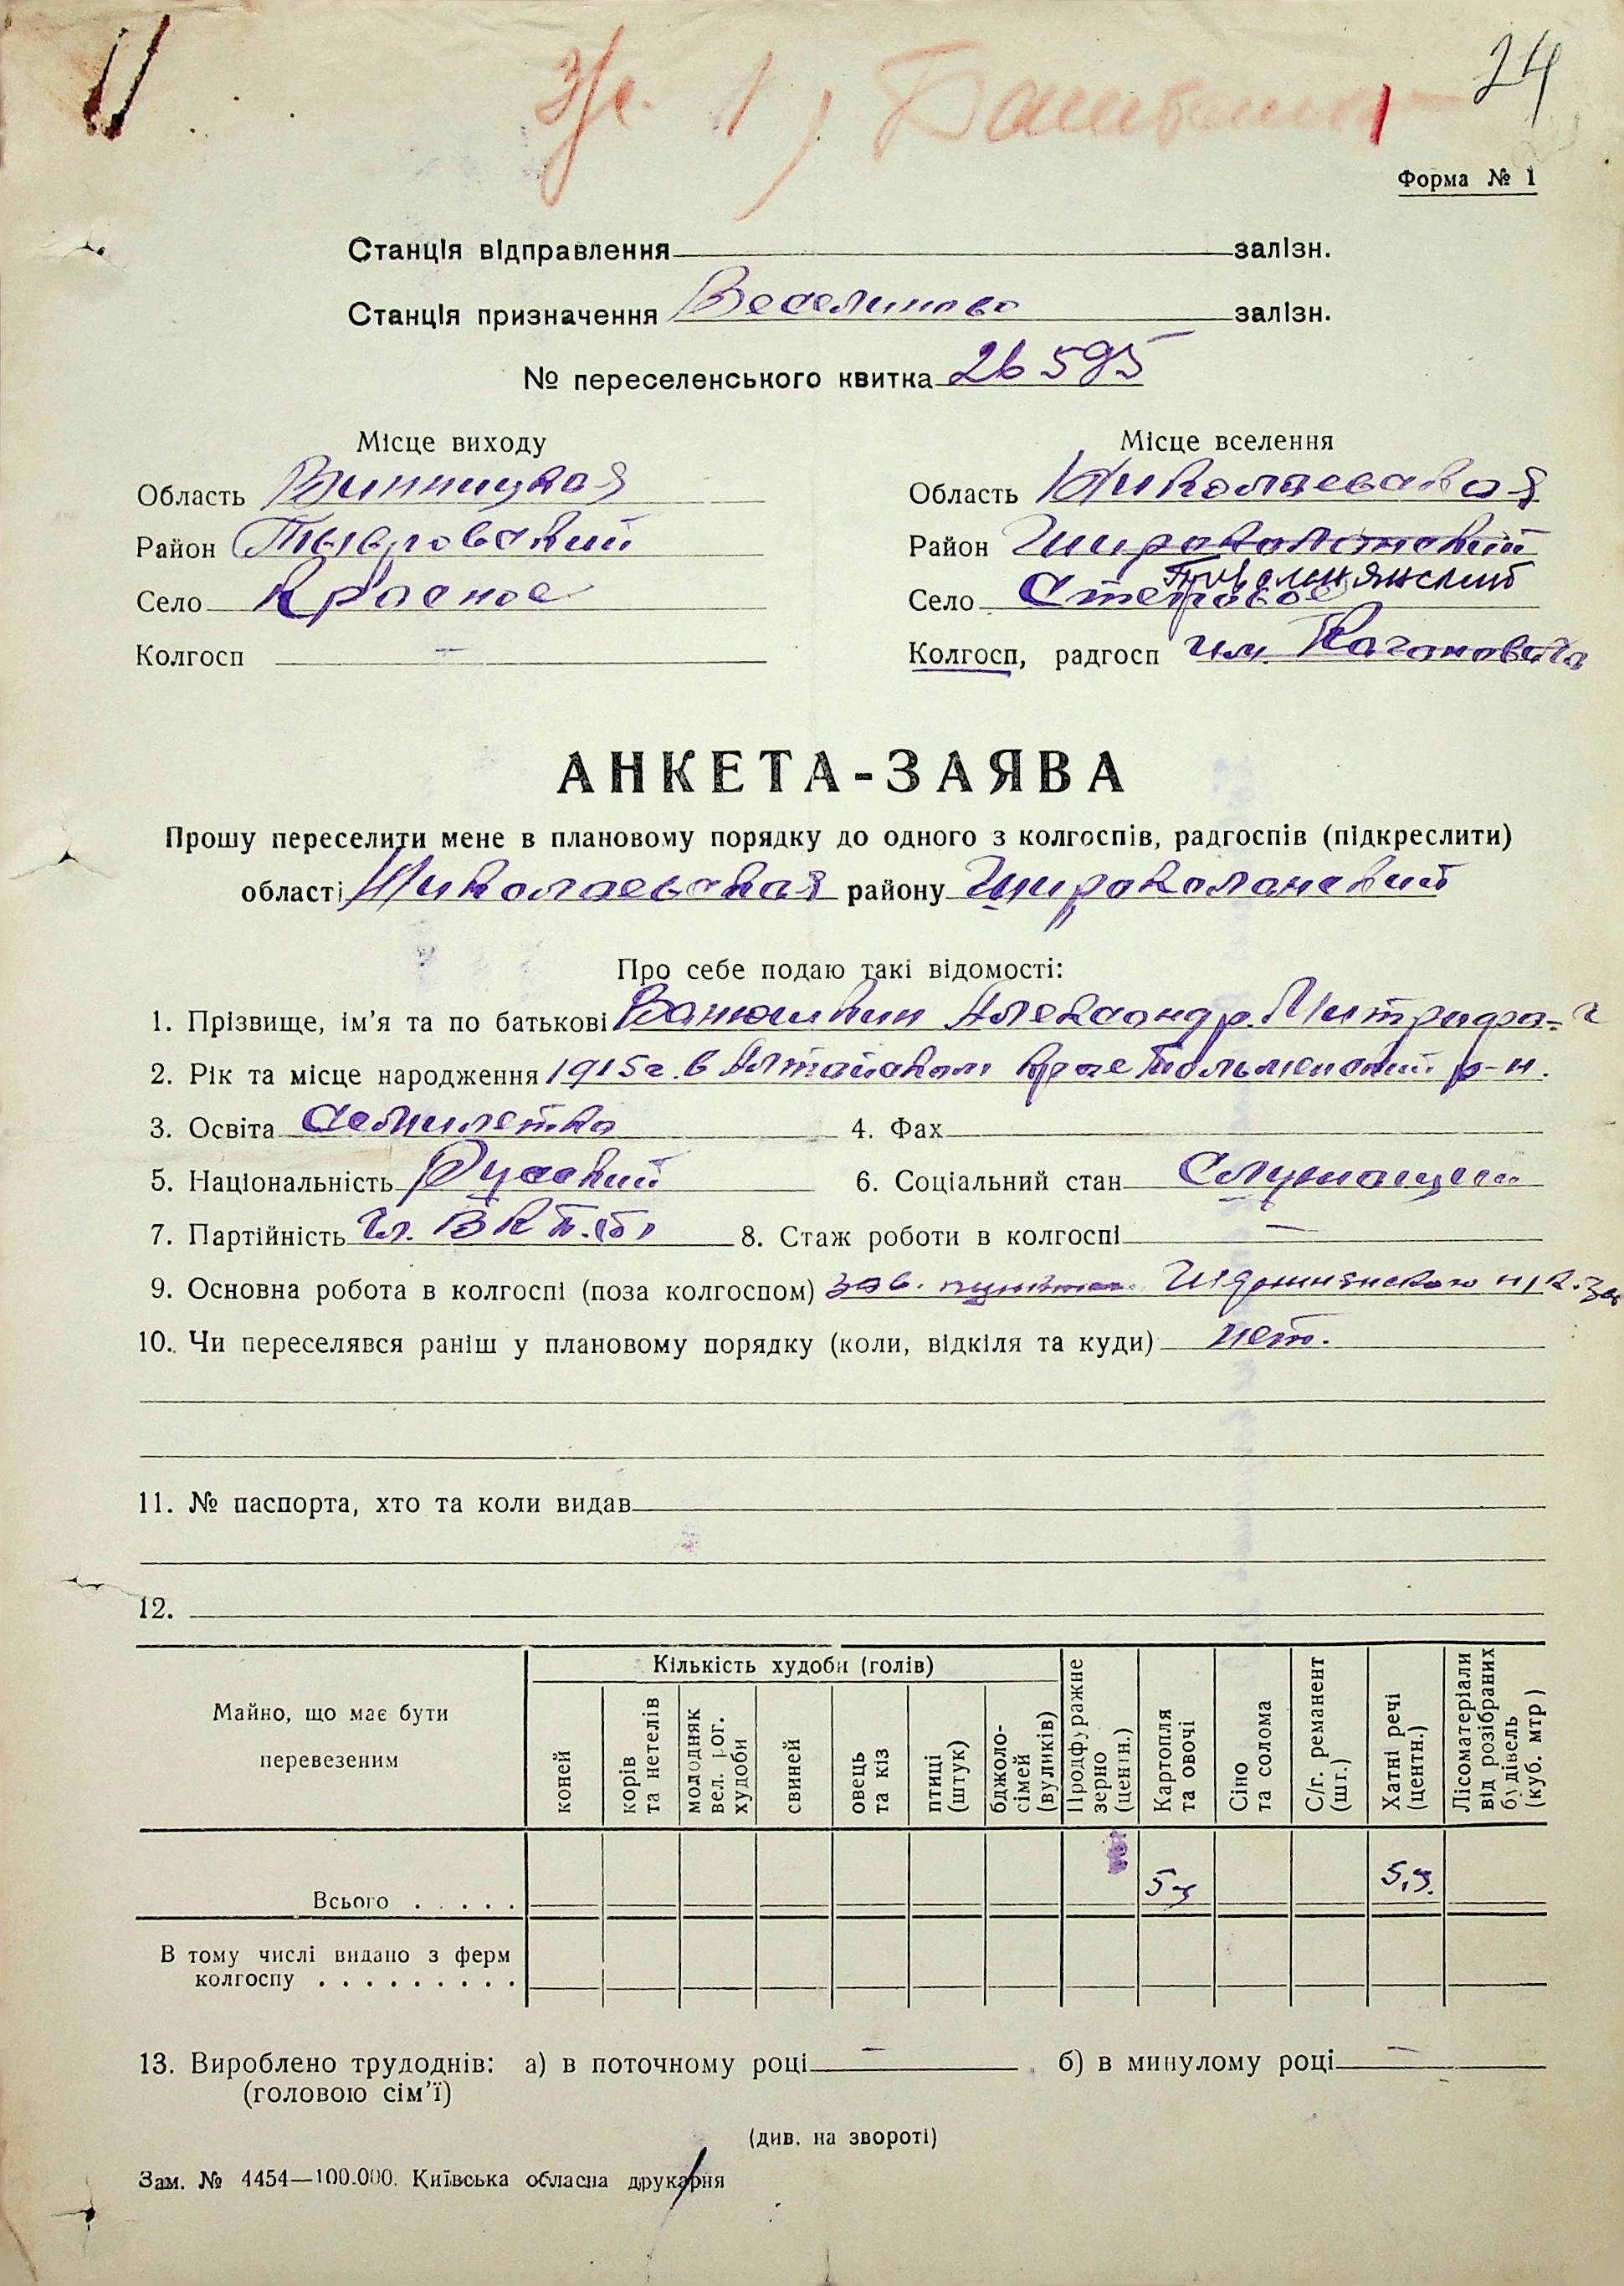 24
Форма № 1
Станція відправлення залізн.
Станція призначення Веселиново залізн.
№ переселенського квитка 26595
Місце виходу
Область Винницкая
Район Тывровский
Село Красное
Колгосп —
Місце вселення
Область Николаевская
Район Широколановский
Привольнянский
Село Степовое
Колгосп, радгосп им. Кагановича
АНКЕТА-ЗАЯВА
Прошу переселити мене в плановому порядку до одного з колгоспів, радгоспів (підкреслити)
області Николаевская району Широколановский
Про себе подаю такі відомості:
1. Прізвище, ім'я та по батькові Ванюшкин Александр Митрофа-
2. Рік та місце народження 1915 г. в Алтайском крае Тюльменский р-н.
3. Освіта Семилетка 4. Фах
5. Національність Русский 6. Соціальний стан Служащий
7. Партійність чл. ВКП.(б) 8. Стаж роботи в колгоспі —
9. Основна робота в колгоспі (поза колгоспом) зав. пунктом
10. Чи переселявся раніш у плановому порядку (коли, відкіля та куди) нет.
11. № паспорта, хто та коли видав
12.
Майно, що має бути перевезеним
Кількість худоби (голів)
коней
корів та нетелів
молодняк вел. рог. худоби
свиней
овець та кіз
птиці (штук)
бджоло-сімей (вуликів)
Продфуражне зерно (центн.)
Картопля та овочі
Сіно та солома
С/г. реманент (шт.)
Хатні речі (центн.)
Лісоматеріали від розібраних будівель (куб. мтр)
Всього . . . . . 5 ц 5 ц.
В тому числі видано з ферм
колгоспу . . . . . . . . .
13. Вироблено трудоднів: а) в поточному році — б) в минулому році —
(головою сім'ї)
(див. на звороті)
Зам. № 4454—100.000. Київська обласна друкарня